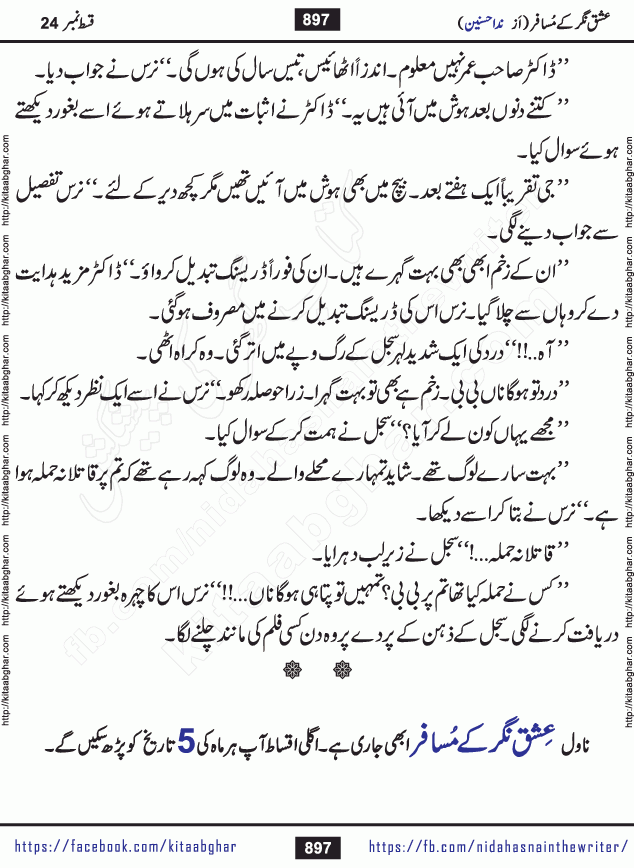 عشق نگر کے مُسافر (از ندا حسنین) 897 قسط نمبر 24
’’ڈاکٹر صاحب عمر نہیں معلوم۔ اندزاً اٹھائیس، تیس سال کی ہوں گی۔‘‘ نرس نے جواب دیا۔
’’کتنے دنوں بعد ہوش میں آئی ہیں یہ۔‘‘ ڈاکٹر نے اثبات میں سر ہلاتے ہوئے اسے بغور دیکھتے
ہوئے سوال کیا۔
’’جی تقریباً ایک ہفتے بعد۔ بیچ میں بھی ہوش میں آئیں تھیں مگر کچھ دیر کے لئے۔‘‘ نرس تفصیل
سے جواب دینے لگی۔
’’ان کے زخم ابھی بھی بہت گہرے ہیں۔ ان کی فوراً ڈریسنگ تبدیل کرواؤ۔‘‘ ڈاکٹر مزید ہدایت
دے کر وہاں سے چلا گیا۔ نرس اس کی ڈریسنگ تبدیل کرنے میں مصروف ہو گئی۔
’’آہ..!!‘‘ درد کی ایک شدید لہر سجل کے رگ و پے میں اتر گئی۔ وہ کراہ اٹھی۔
’’درد تو ہوگا ناں بی بی۔ زخم ہے بھی تو بہت گہرا۔ زرا حوصلہ رکھو۔‘‘ نرس نے اسے ایک نظر دیکھ کر کہا۔
’’مجھے یہاں کون لے کر آیا؟‘‘ سجل نے ہمت کر کے سوال کیا۔
’’بہت سارے لوگ تھے۔ شاید تمہارے محلے والے۔ وہ لوگ کہہ رہے تھے کہ تم پر قاتلانہ حملہ ہوا
ہے۔‘‘ نرس نے بتا کر اسے دیکھا۔
’’قاتلانہ حملہ...!‘‘ سجل نے زیرِ لب دہرایا۔
’’کس نے حملہ کیا تھا تم پر بی بی؟ تمہیں تو پتا ہی ہوگا ناں...!!‘‘ نرس اس کا چہرہ بغور دیکھتے ہوئے
دریافت کرنے لگی سجل کے ذہن کے پردے پر وہ دن کسی فلم کی مانند چلنے لگا۔
ناول عِشق نگر کے مُسافر ابھی جاری ہے۔ اگلی اقساط آپ ہر ماہ کی 5 تاریخ کو پڑھ سکیں گے۔
https://facebook.com/kitaabghar 897 https://fb.com/nidahasnainthewriter/
http://kitaabghar.com http://kitaabghar.com http://kitaabghar.com http://kitaabghar.com http://kitaabghar.com http://kitaabghar.com
http://kitaabghar.com http://kitaabghar.com http://kitaabghar.com http://kitaabghar.com http://kitaabghar.com http://kitaabghar.com
کتاب گھر کی پیشکش
fb.com/nidahasnainthewriter
kitaabghar.com